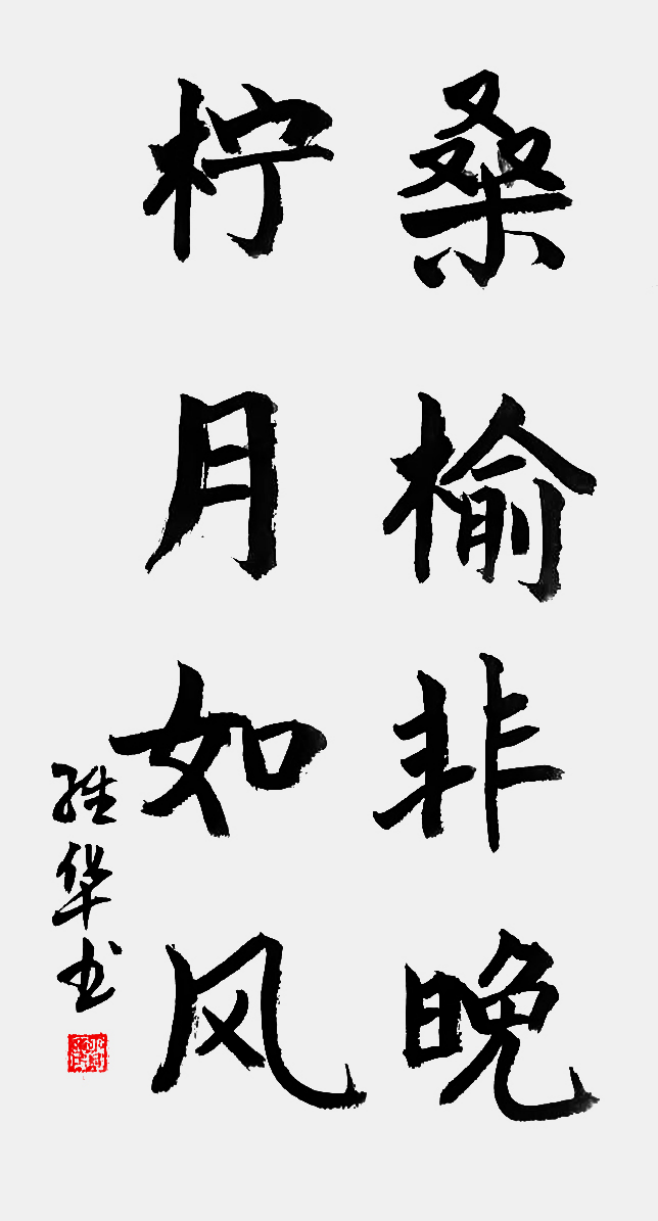 桑榆非晚
柠月如风
维华书